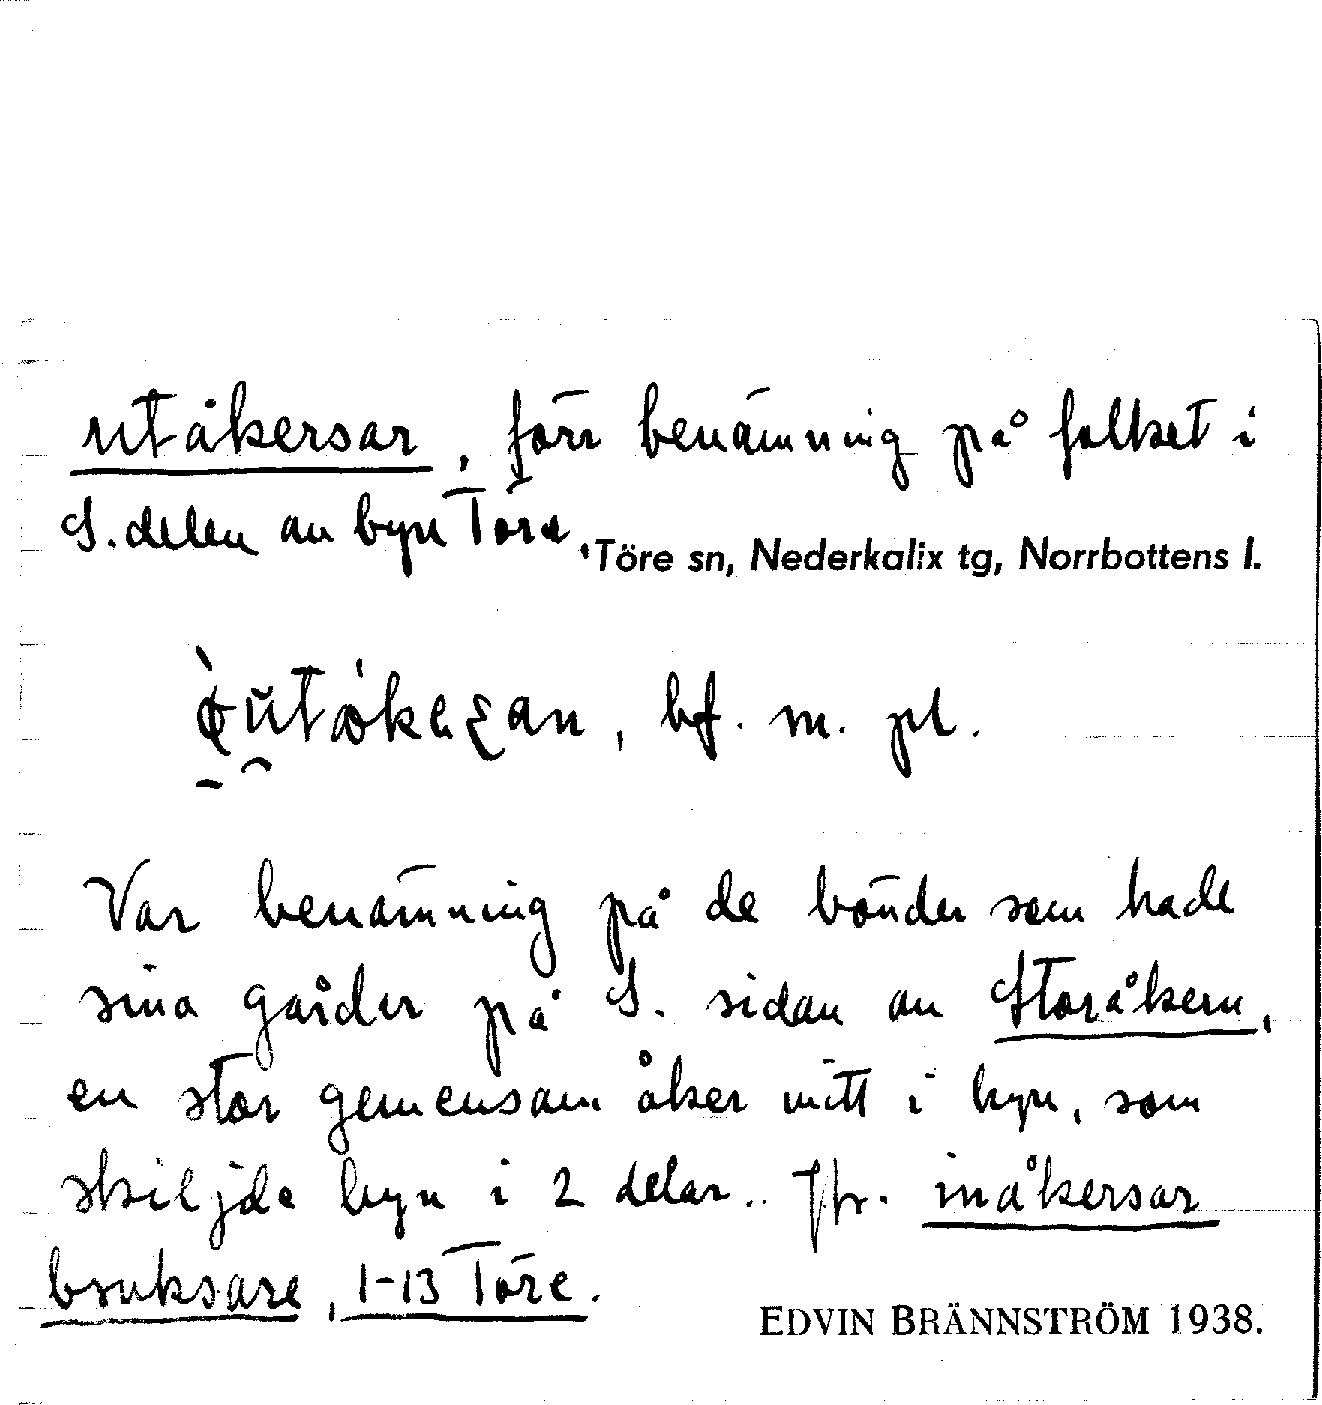 utåkersar, förr benämning på folket i
S. delen av byn Töre.
Töre sn, Nederkalix tg, Norrbottens l.
bf. m. pl.
Var benämning på de bönder som hade
sina gårder på S. sidan av Storåkern,
en stor gemensam åker mitt i byn, som
skiljde byn i 2 delar.. Jfr. inåkersar
bruksare, 1-13 Töre.
EDVIN BRÄNNSTRÖM 1938.